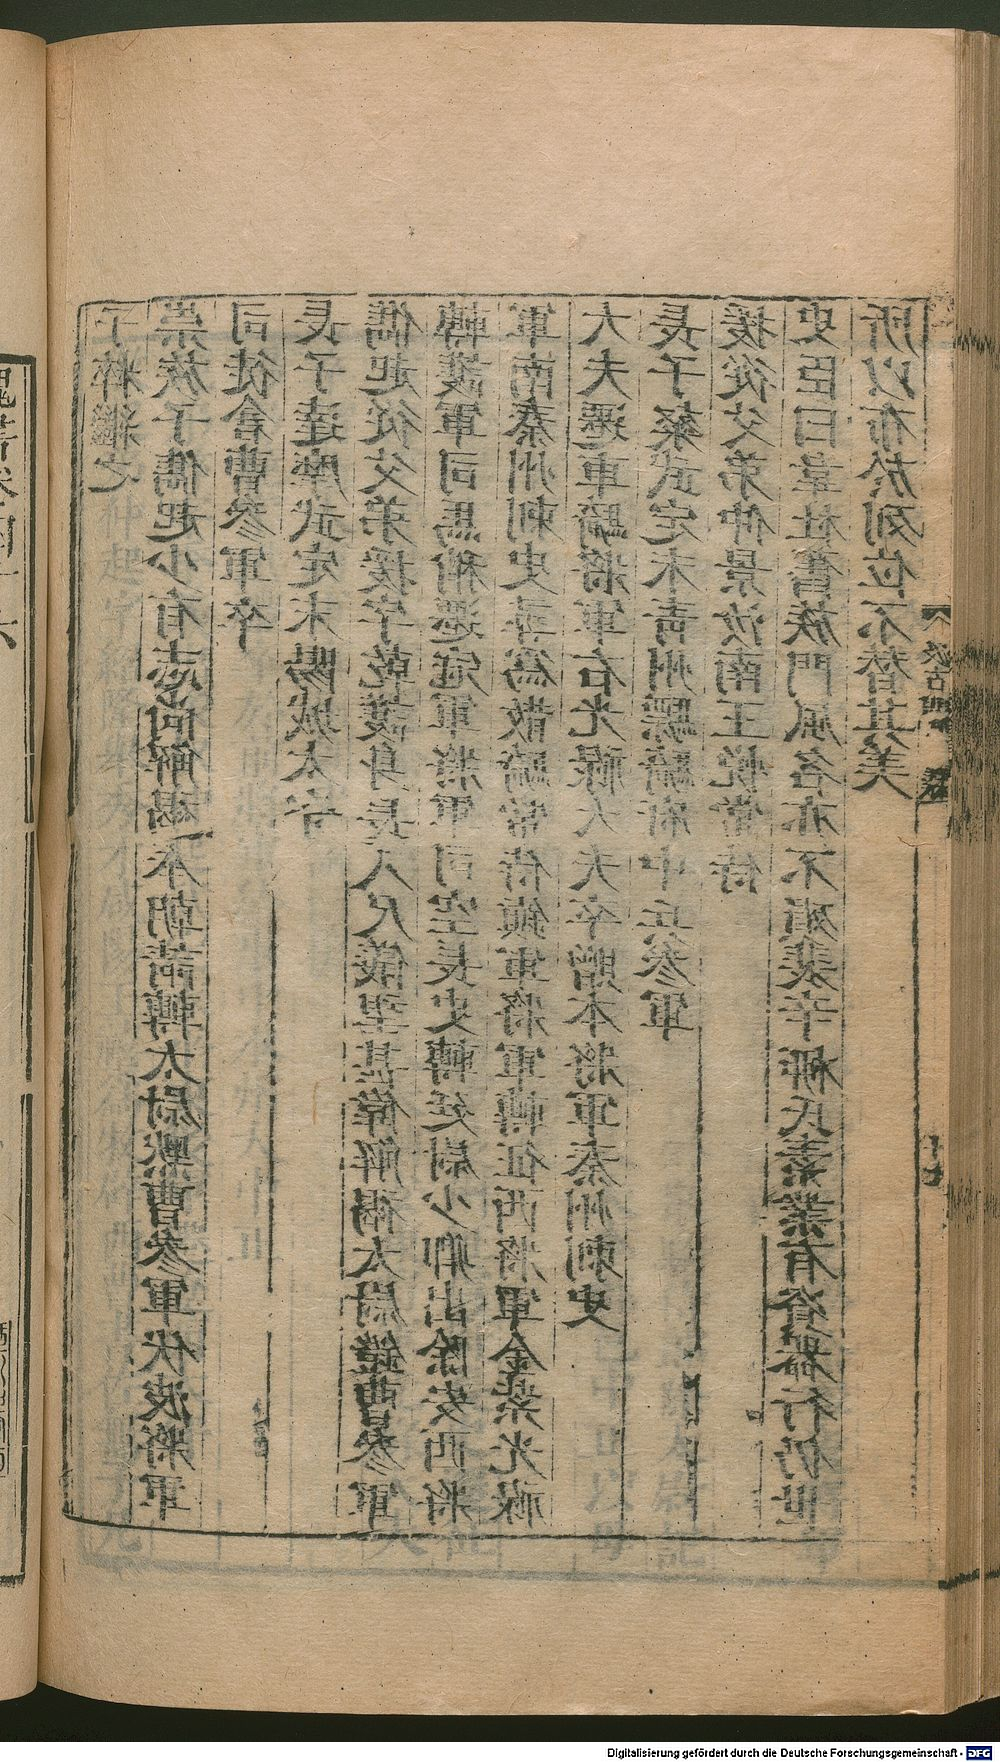 子粹繼之
崇族子儁起少有志尚解褐奉朝請轉太尉默曹參軍伏波將軍
司徒倉曹參軍卒
長子達摩武定末陽城太守
儁起從父弟援字乾護身長八尺儀望甚偉解褐太尉鎧曹參軍
轉護軍司馬稍遷冠軍將軍司空長史轉廷尉少卿出除安西將
軍南秦州刺史尋爲散騎常侍鎮軍將軍轉征西將軍金紫光祿
大夫遷車騎將軍右光祿大夫卒贈本將軍秦州刺史
長子粲武定末青州驃騎府中兵參軍
援從父弟仲景汝南王悅常侍
史臣曰韋杜舊族門風名亦不殞裴辛柳氏素業有資器行仍世
所以布於列位不替其美
Digitalisierung gefördert durch die Deutsche Forschungsgemeinschaft - DFG